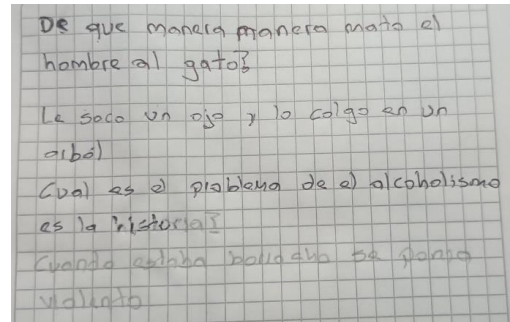 De que manera manera mato el
hombre al gato?
Le saco un ojo y lo colgo en un
arbol
Cual es el problema de el alcoholismo
es la historia?
Cuando estaba se ponia